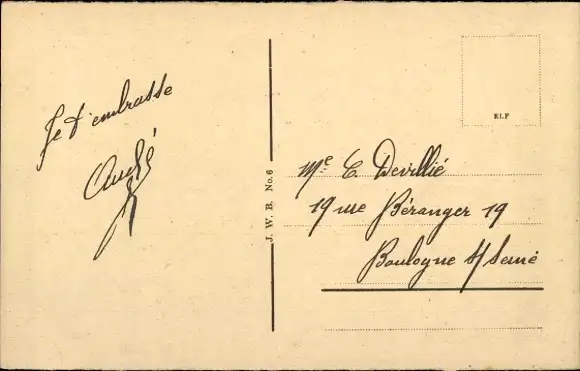 Je t'embrasse
André
J. W. B. No. 6
R.I.P
Me C. Devillié
19 rue Béranger 19
Boulogne s/ Seine